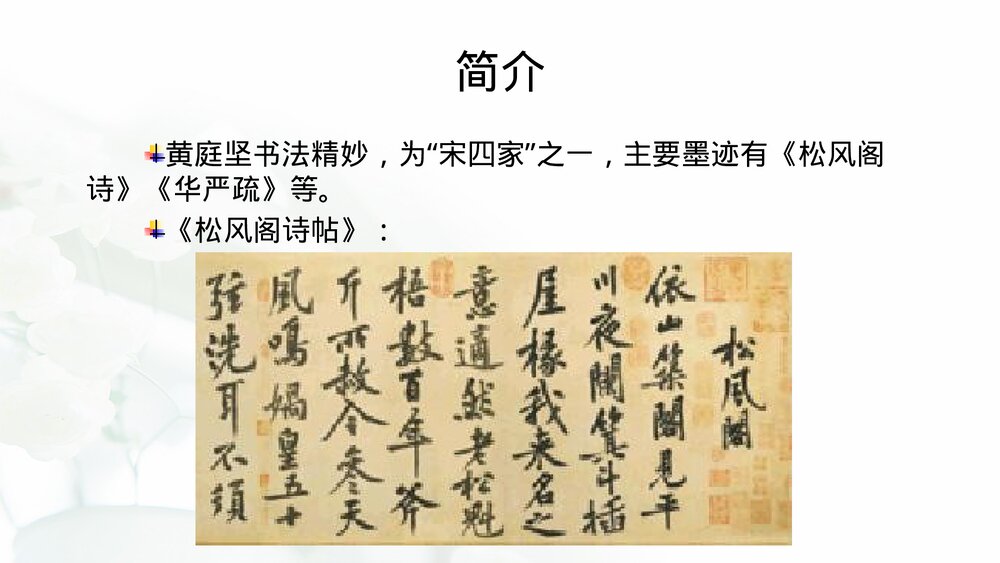 简介
黄庭坚书法精妙，为“宋四家”之一，主要墨迹有《松风阁
诗》《华严疏》等。
《松风阁诗帖》：
松風閣
依山築閣見平
川夜闌箕斗插
屋椽我来名之
意適然老松魁
梧數百年斧
斤所赦令参天
風鳴媧皇五十
弦洗耳不須